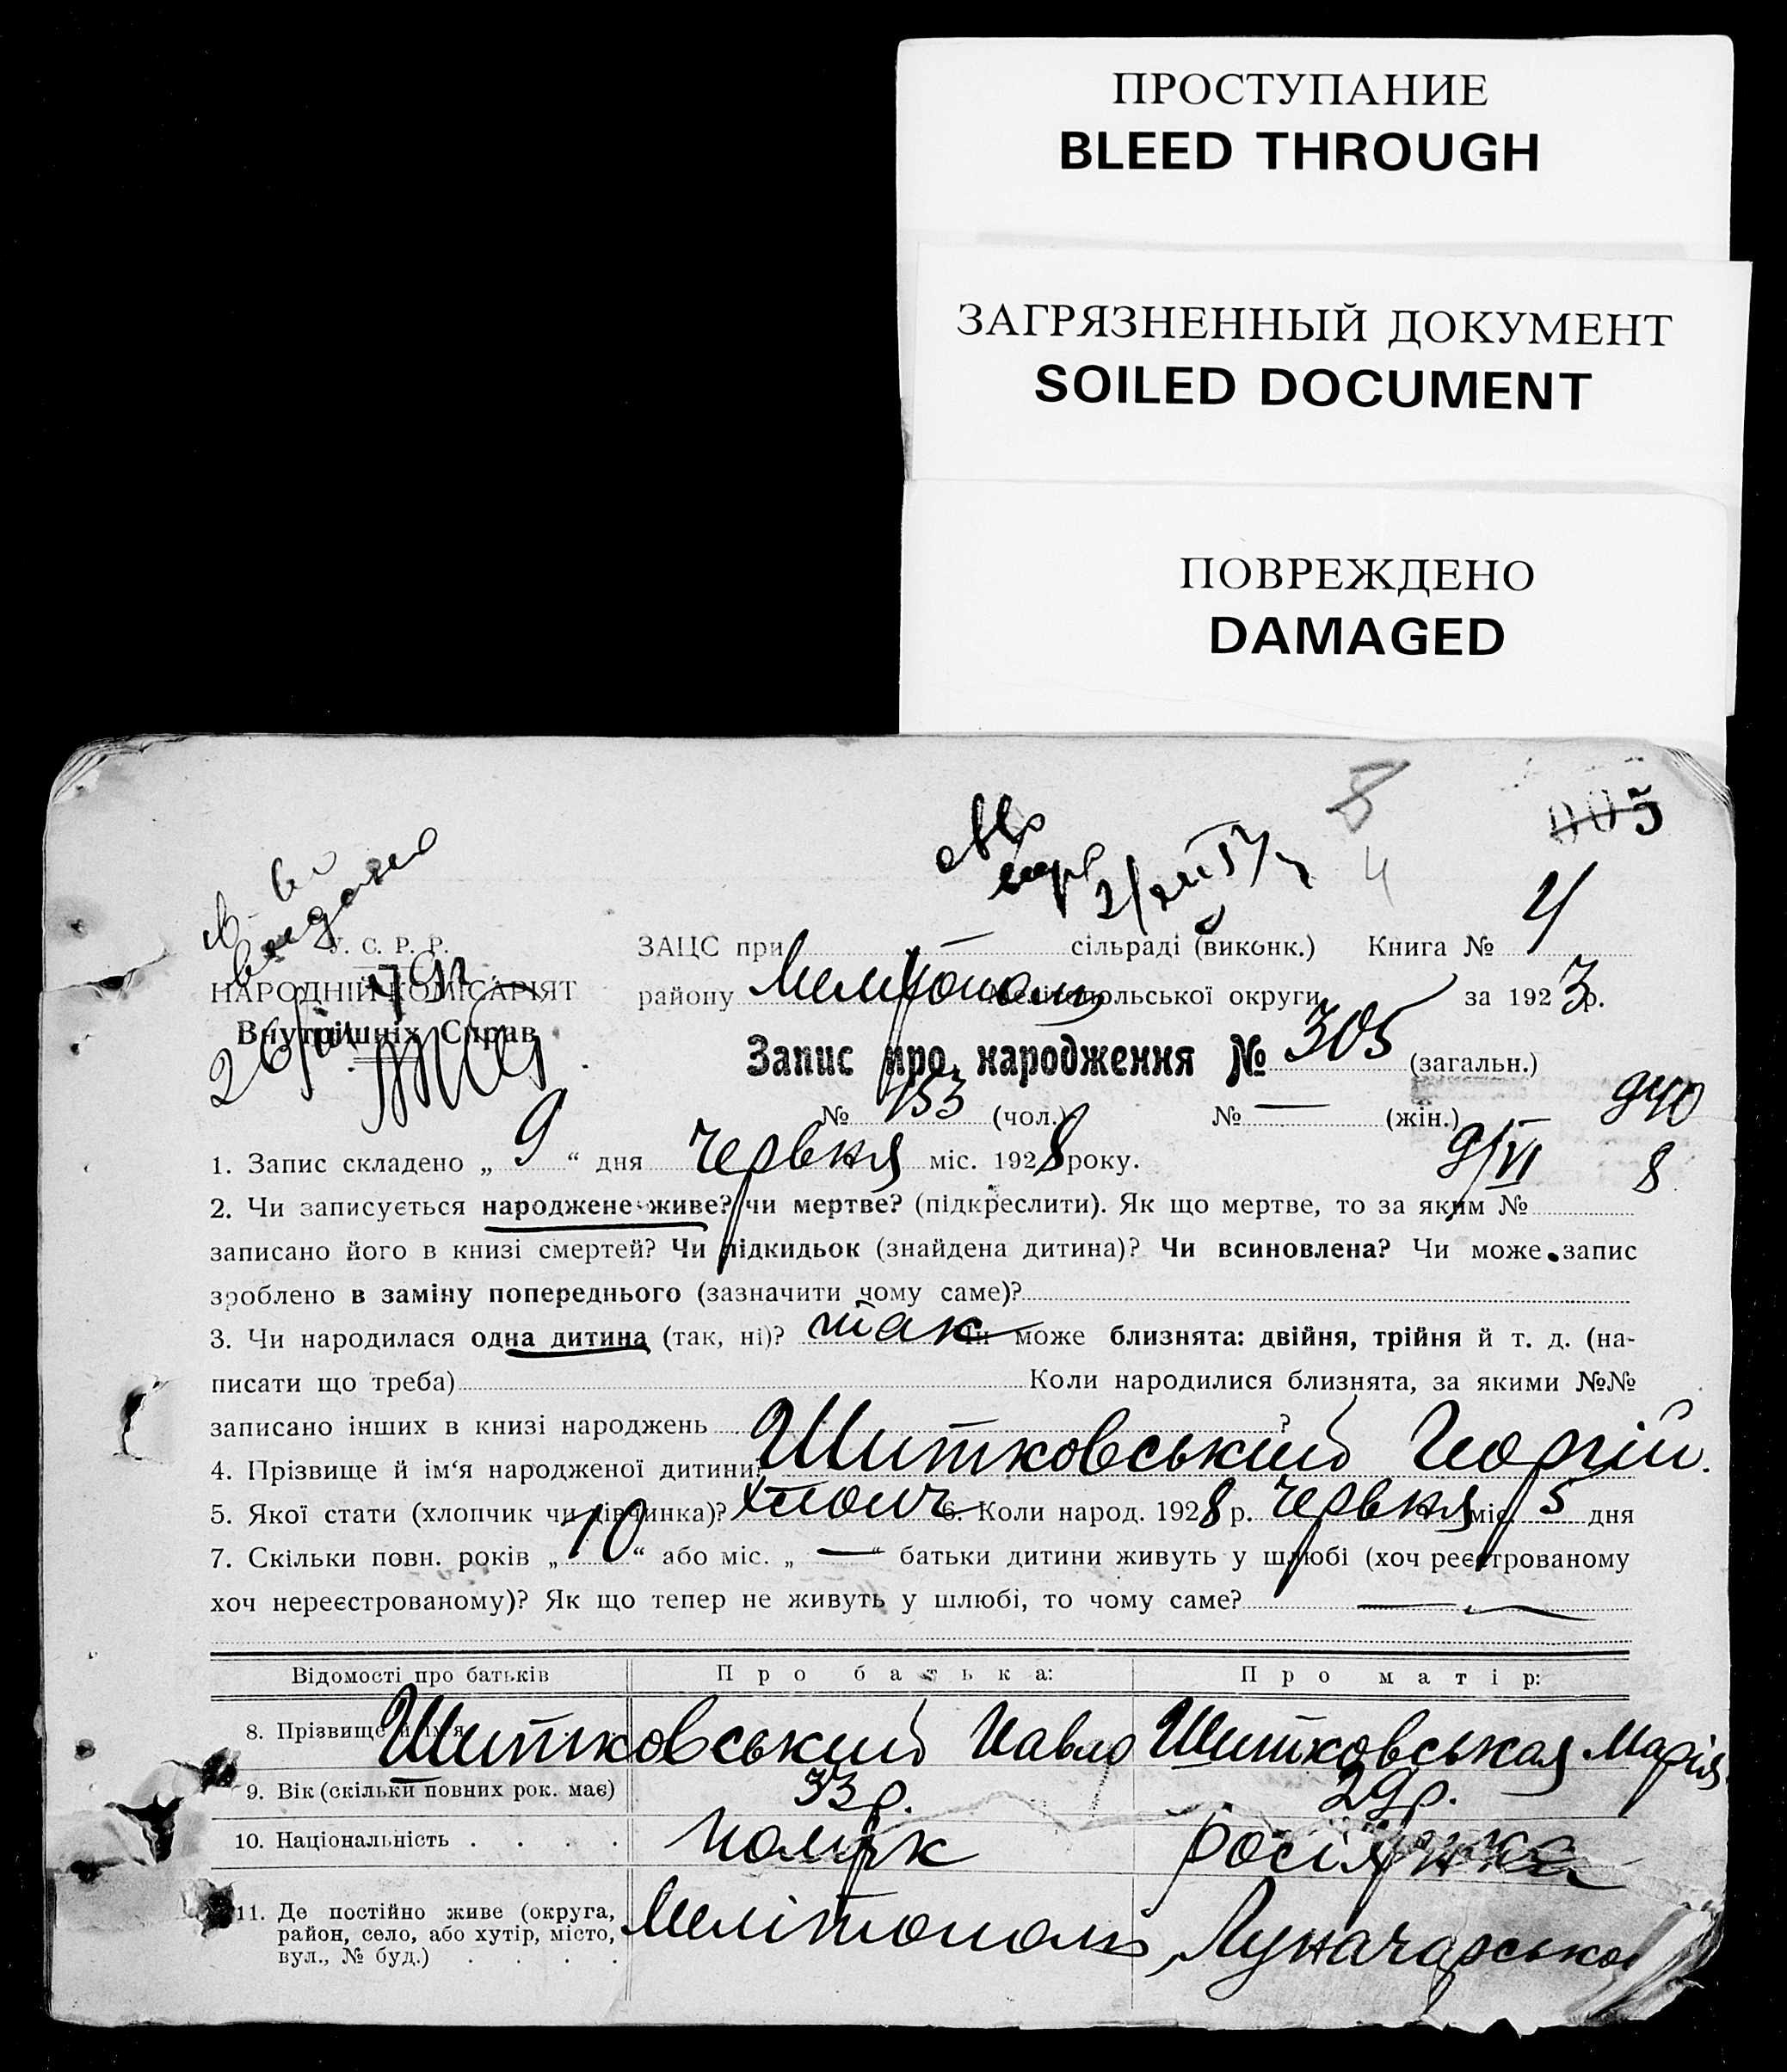 ПРОСТУПАНИЕ
BLEED THROUGH
ЗАГРЯЗНЕННЫЙ ДОКУМЕНТ
SOILED DOCUMENT
ПОВРЕЖДЕНО
DAMAGED
8
005
4
У. С. Р. Р.
НАРОДНІЙ КОМІСАРІЯТ
Внутрішніх Справ
ЗАЦС при — сільраді (виконк.) Книга № 4
району Мелітополь Мелітопольської округи за 1923 р.
Запис про народження № 305 (загальн.)
№ 153 (чол.) № — (жін.)
940
9/VI 8
1. Запис складено „ 9 “ дня червня міс. 1928 року.
2. Чи записується народжене живе? чи мертве? (підкреслити). Як що мертве, то за яким №
записано його в книзі смертей? Чи підкидьок (знайдена дитина)? Чи всиновлена? Чи може запис
зроблено в заміну попереднього (зазначити чому саме)?
3. Чи народилася одна дитина (так, ні)? так Чи може близнята: двійня, трійня й т. д. (на-
писати що треба) Коли народилися близнята, за якими №№
записано інших в книзі народжень ?
4. Прізвище й ім‘я народженої дитини: Шитковський Георгій.
5. Якої стати (хлопчик чи дівчинка)? хлопч 6. Коли народ. 1928 р. червня міс. 5 дня
7. Скільки повн. років „ 10 “ або міс. „ — “ батьки дитини живуть у шлюбі (хоч реєстрованому
хоч нереєстрованому)? Як що тепер не живуть у шлюбі, то чому саме? —
Відомості про батьків Про батька: Про матір:
8. Прізвище й ім‘я Шитковський Павло Шитковськая Марія
9. Вік (скільки повних рок. має) 33 р. 29 р.
10. Національність . . . . поляк росіянка
11. Де постійно живе (округа,
район, село, або хутір, місто,
вул., № буд.) . . . . Мелітополь, Луначарської